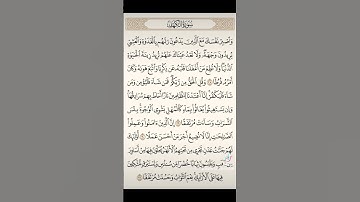 سُورَةُ الكَهْفِ
وَاصْبِرْ نَفْسَكَ مَعَ الَّذِينَ يَدْعُونَ رَبَّهُم بِالْغَدَوٰةِ وَالْعَشِيِّ
يُرِيدُونَ وَجْهَهُۥ وَلَا تَعْدُ عَيْنَاكَ عَنْهُمْ تُرِيدُ زِينَةَ الْحَيَوٰةِ
الدُّنْيَا وَلَا تُطِعْ مَنْ أَغْفَلْنَا قَلْبَهُۥ عَن ذِكْرِنَا وَاتَّبَعَ هَوَىٰهُ وَكَانَ
أَمْرُهُۥ فُرُطًا ۝٢٨ وَقُلِ الْحَقُّ مِن رَّبِّكُمْ فَمَن شَاءَ فَلْيُؤْمِن وَمَن
شَاءَ فَلْيَكْفُرْ إِنَّا أَعْتَدْنَا لِلظَّالِمِينَ نَارًا أَحَاطَ بِهِمْ سُرَادِقُهَا
وَإِن يَسْتَغِيثُوا يُغَاثُوا بِمَاءٍ كَالْمُهْلِ يَشْوِي الْوُجُوهَ بِئْسَ
الشَّرَابُ وَسَاءَتْ مُرْتَفَقًا ۝٢٩ إِنَّ الَّذِينَ ءَامَنُوا وَعَمِلُوا
الصَّالِحَاتِ إِنَّا لَا نُضِيعُ أَجْرَ مَنْ أَحْسَنَ عَمَلًا ۝٣٠ أُولَٰئِكَ
لَهُمْ جَنَّاتُ عَدْنٍ تَجْرِي مِن تَحْتِهِمُ الْأَنْهَارُ يُحَلَّوْنَ فِيهَا مِنْ أَسَاوِرَ
مِن ذَهَبٍ وَيَلْبَسُونَ ثِيَابًا خُضْرًا مِّن سُندُسٍ وَإِسْتَبْرَقٍ مُّتَّكِئِينَ
فِيهَا عَلَى الْأَرَائِكِ نِعْمَ الثَّوَابُ وَحَسُنَتْ مُرْتَفَقًا ۝٣١